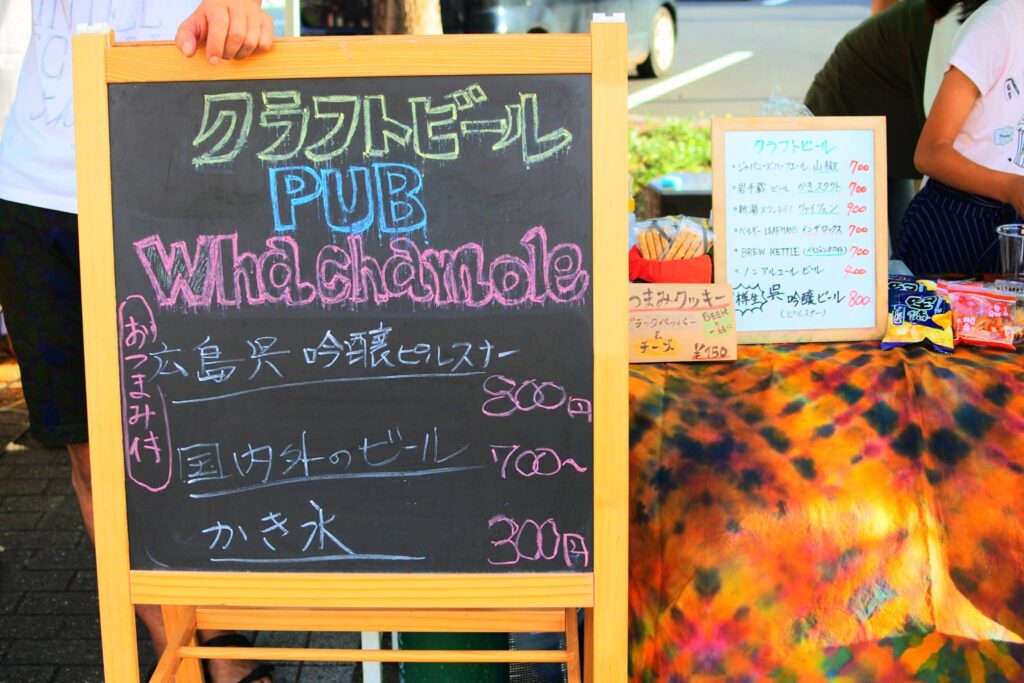 クラフトビール
PUB
Whachamole
おつまみ付
広島呉 吟醸ピルスナー
800円
国内外のビール
700~
かき氷
300円
クラフトビール
・ジャパニーズハーブエール 山椒 700
・岩手蔵ビール かきスタウト 700
・新潟スワンレイク ヴァイツェン 900
・ベルギー LEAFMANS インザロックス 700
・BREW KETTLE 700
・ノンアルコールビール 400
樽生 呉 吟醸ビール 800
(ピルスナー)
つまみクッキー
ブラックペッパー
&
チーズ
Beerと
一緒に
¥150